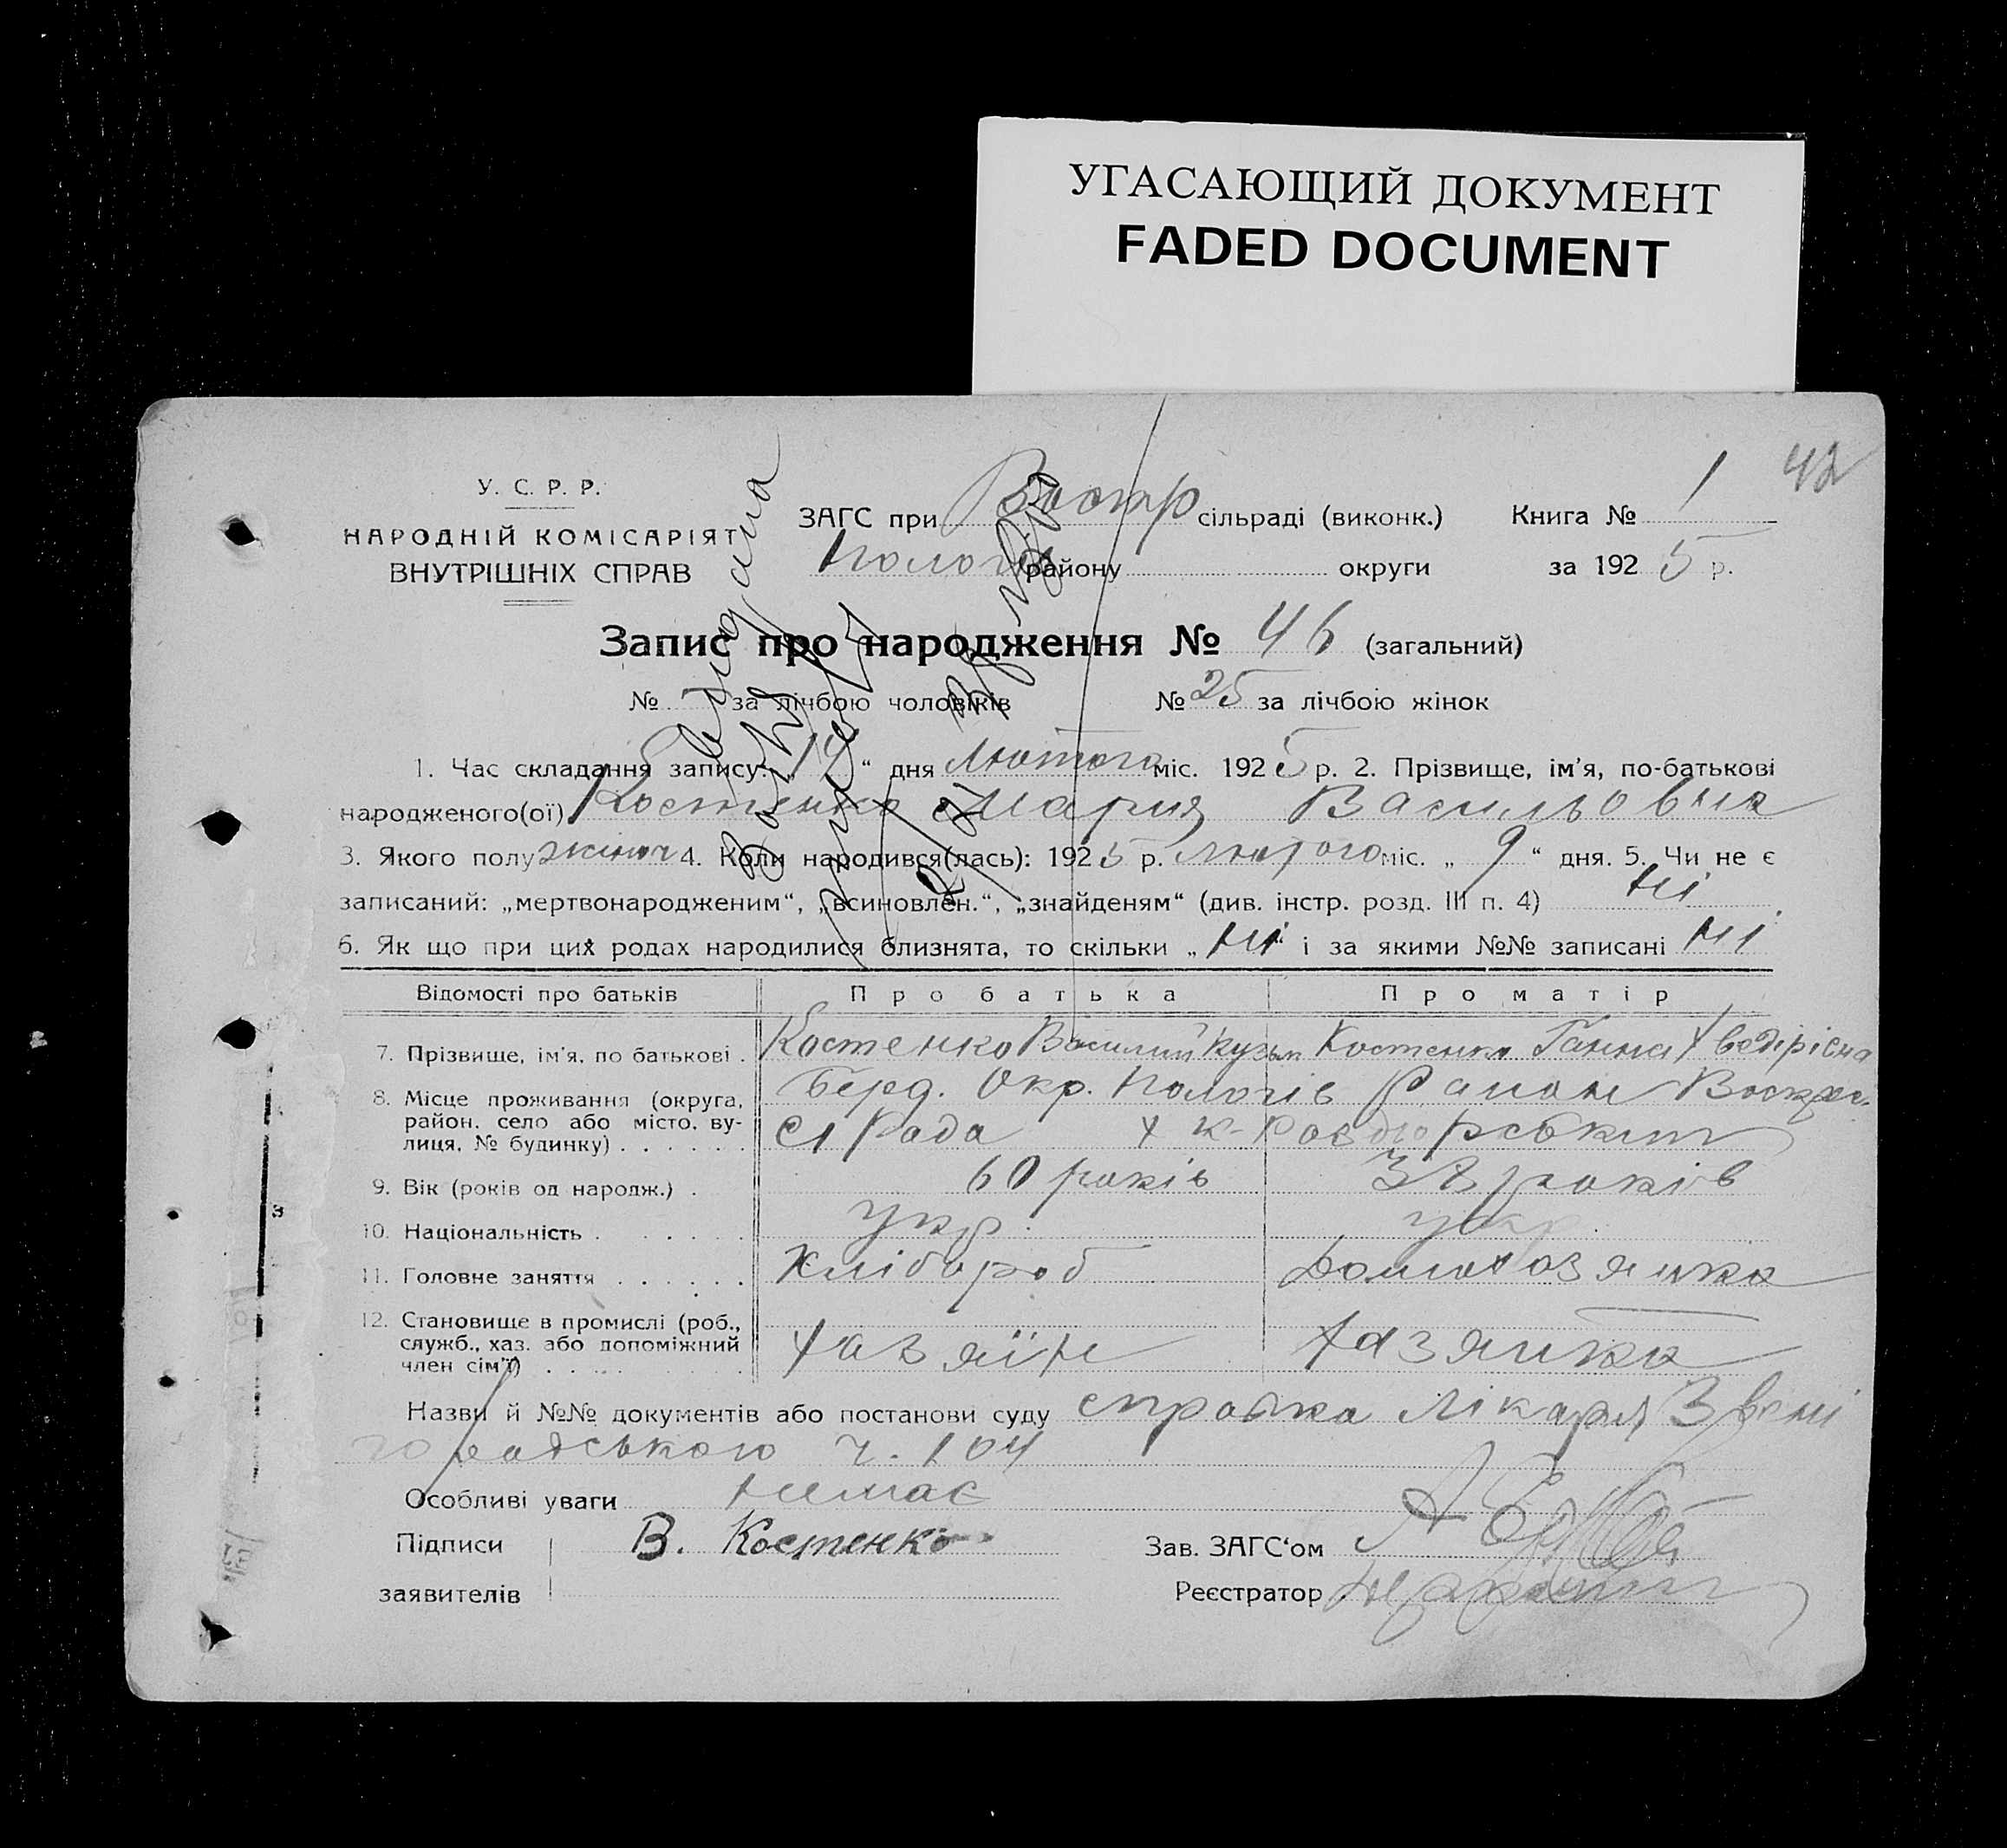 УГАСАЮЩИЙ ДОКУМЕНТ
FADED DOCUMENT
42
У. С. Р. Р.
НАРОДНІЙ КОМІСАРІЯТ
ВНУТРІШНІХ СПРАВ
ЗАГС при Воскр сільраді (виконк.) Книга № 1
Пологів району округи за 1925 р.
Запис про народження № 46 (загальний)
№ за лічбою чоловіків № 25 за лічбою жінок
1. Час складання запису: „14“ дня Лютого міс. 1925 р. 2. Прізвище, ім’я, по-батькові
народженого(ої) Костенко Мария Васильовна
3. Якого полу жіноч 4. Коли народився(лась): 1925 р. Лютого міс. „ 9 “ дня. 5. Чи не є
записаний: „мертвонародженим“, „всиновлен.“, „знайденям“ (див. інстр. розд. III п. 4) Ні
6. Як що при цих родах народилися близнята, то скільки „ Ні “ і за якими №№ записані Ні
Відомості про батьків Про батька Про матір
7. Прізвище, ім’я, по батькові . Костенко Василий Кузьм Костенко Ганна
8. Місце проживання (округа, Берд. Окр. Пологів Район Воскрес.
район, село або місто, ву-
лиця, № будинку) . . . . . . Сг Рада
9. Вік (років од народж.) . 60 років 38 років
10. Національність . . . . . . укр. укр.
11. Головне заняття . . . . . . Хлібороб Домохозяйка
12. Становище в промислі (роб.,
служб., хаз. або допоміжний Хазяїн Хазяйка
член сім’ї) . . . . .
Назви й №№ документів або постанови суду справка лікаря Звени
городського ч. 104
Особливі уваги немає
Підписи В. Костенко Зав. ЗАГС‘ом
заявителів Реєстратор